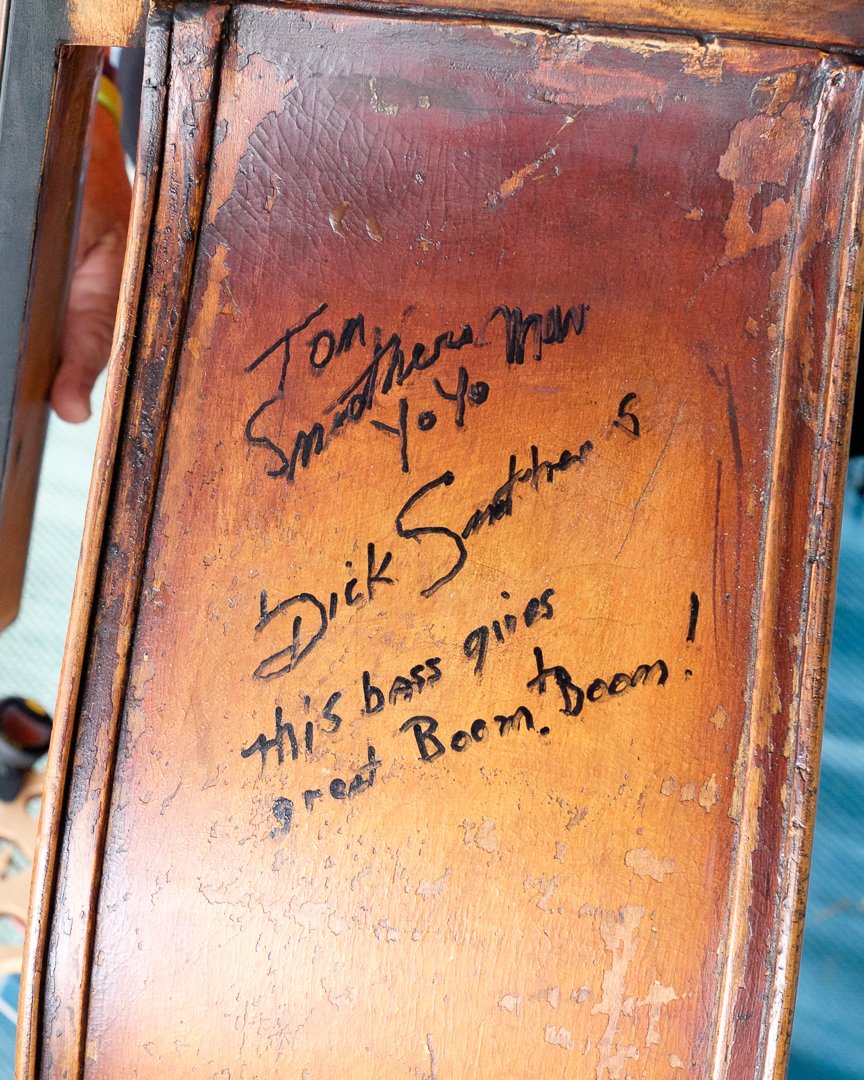 Tom
Smothers Man
Yo Yo
Dick Smothers
this bass gives
great Boom to Boom!